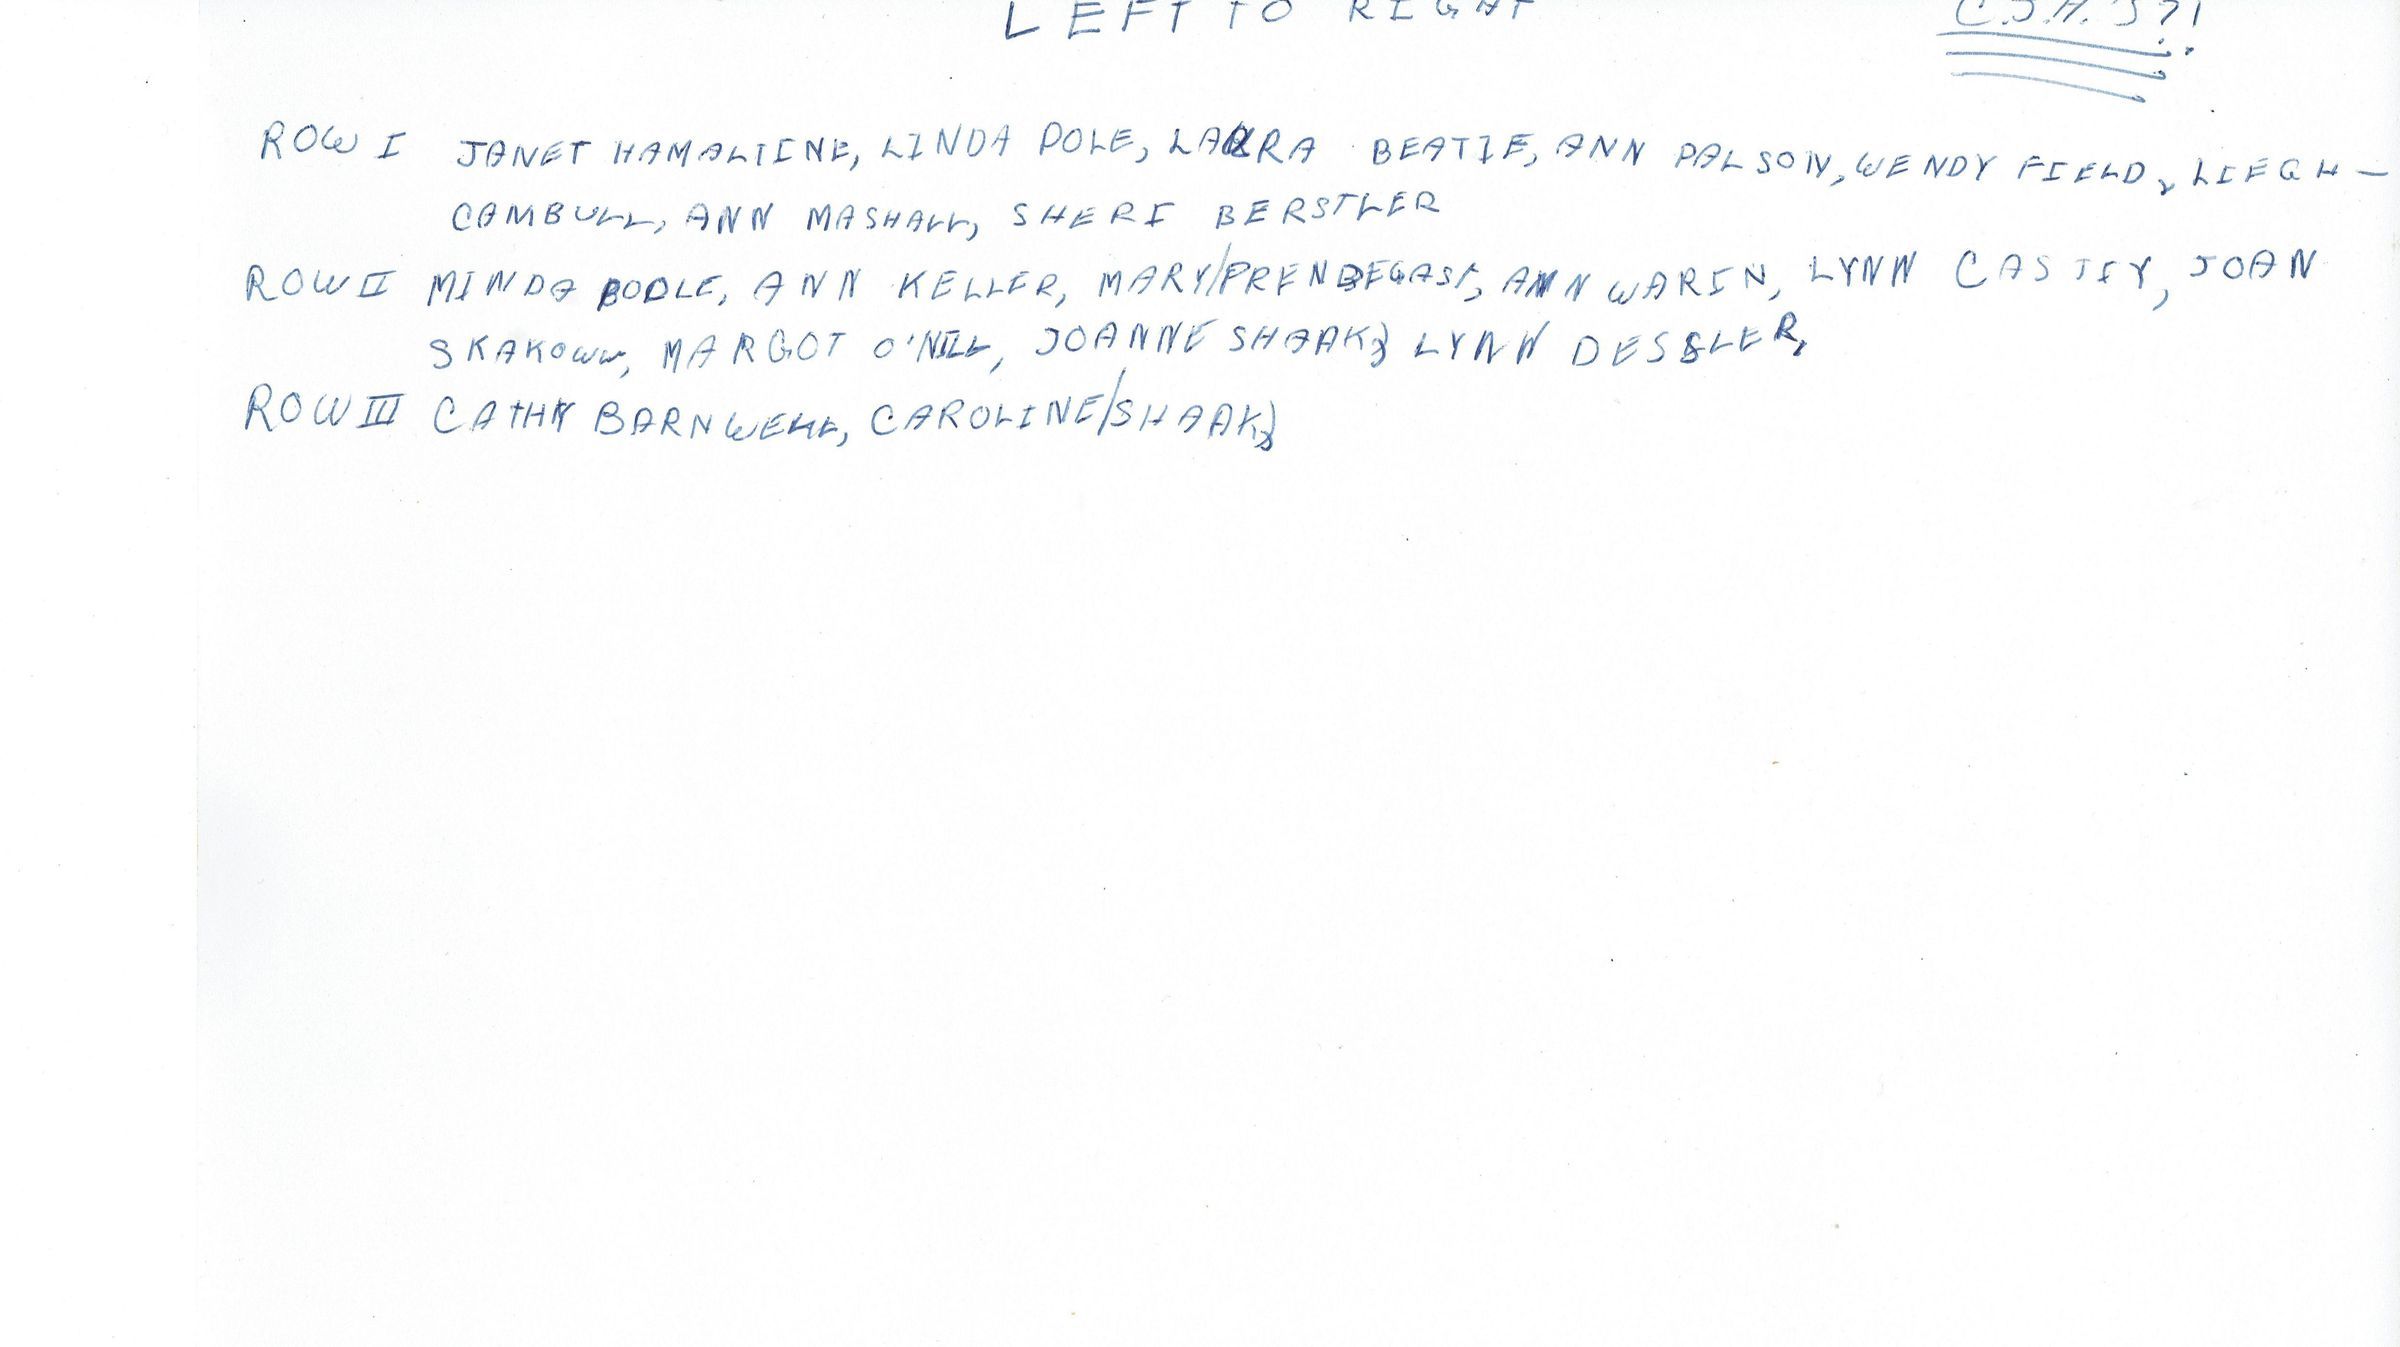 LEFT TO RIGHT
ROW I JANET HAMALTINE, LINDA POLE, LAURA BEATIE, ANN PALSON, WENDY FIELD, LIEGH-
CAMBULL, ANN MASHALL, SHERI BERSTLER
ROW II MINDA BODLE, ANN KELLER, MARY/PRENDEGAST, ANN WARIN, LYNN CASTIY, JOAN
MARGOT O'NILL, JOANNE SHAAK, LYNN DESSLER,
ROW III CATHY BARNWELL, CAROLINE/SHAAK,